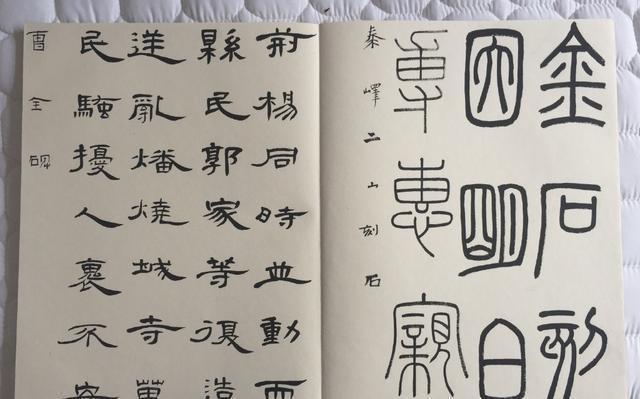 金石刻
因明白
專惠親
秦嶧二山刻石
荊楊同時並動而
縣民郭家等復造
逆亂燔燒城寺萬
民騷擾人裏不安
曹全碑